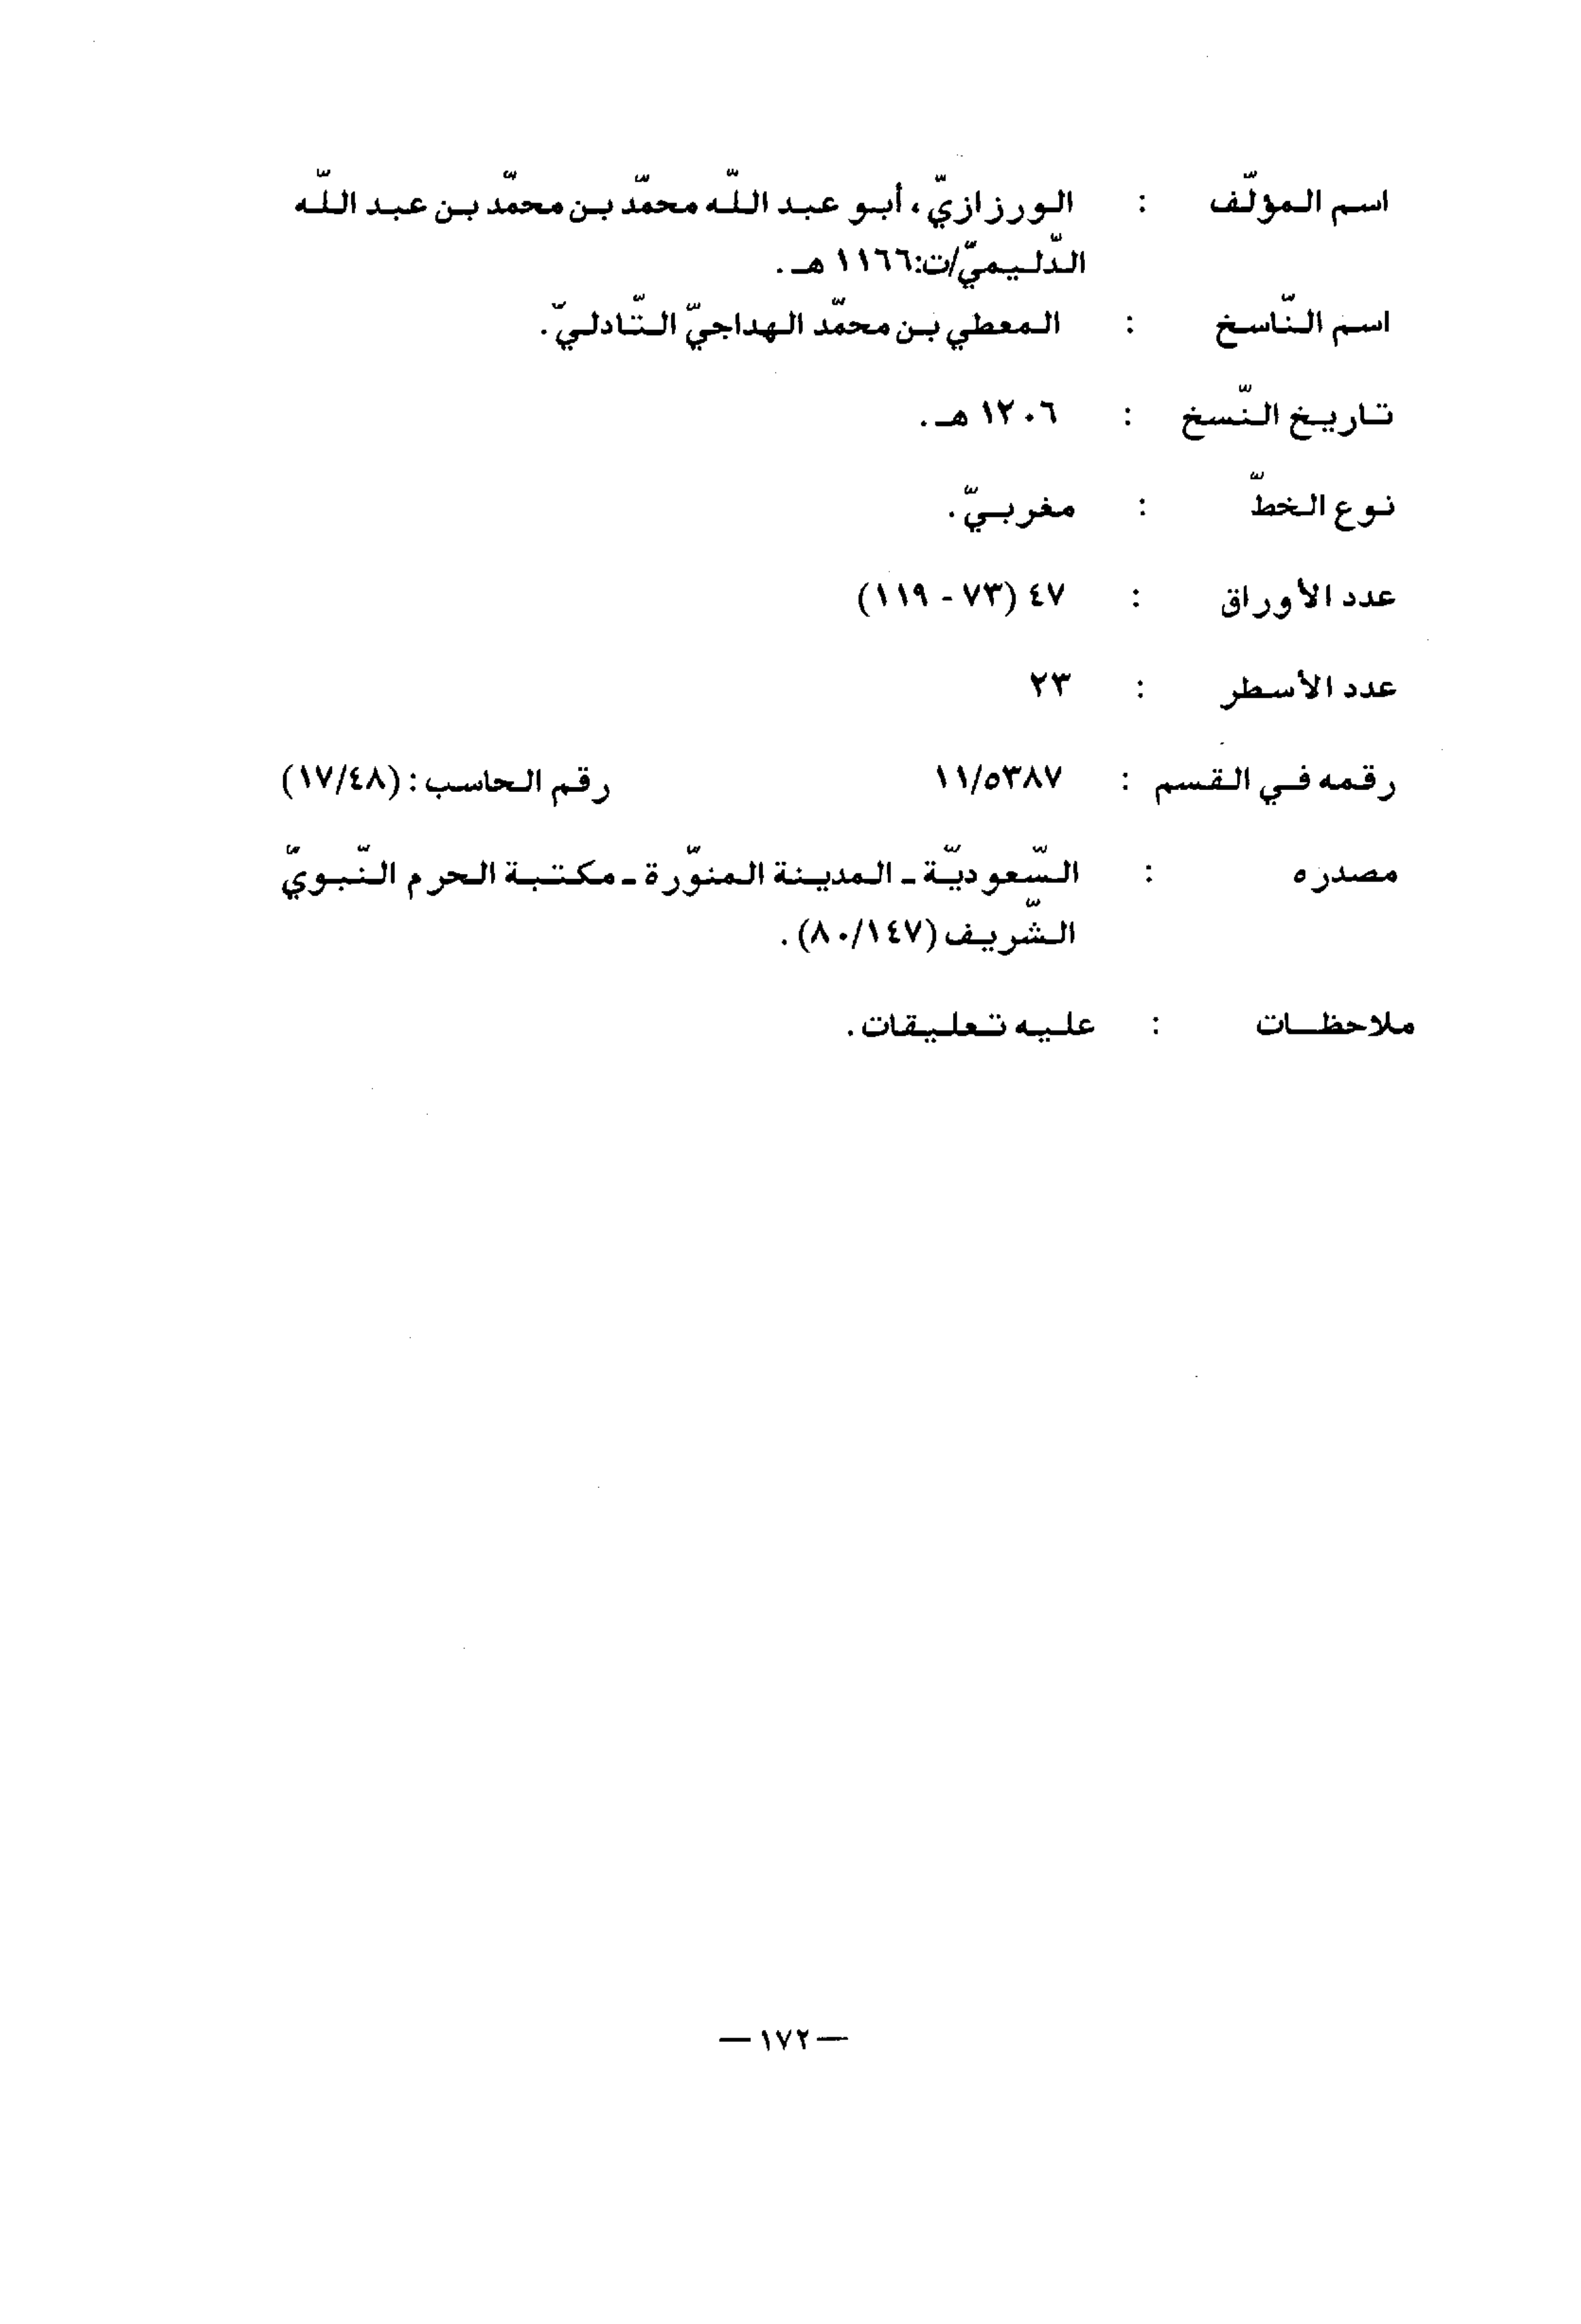 اسم المؤلّف : الورزازيّ، أبو عبد اللّه محمّد بن محمّد بن عبد اللّه
الدّليميّ/ت:١١٦٦ هـ.
اسم النّاسخ : المعطي بن محمّد الهداجيّ التّادليّ.
تاريخ النّسخ : ١٢٠٦ هـ.
نوع الخطّ : مغربيّ.
عدد الأوراق : ٤٧ (٧٣ - ١١٩)
عدد الأسطر : ٢٣
رقمه في القسم : ١١/٥٣٨٧ رقم الحاسب: (١٧/٤٨)
مصدره : السّعوديّة - المدينة المنوّرة - مكتبة الحرم النّبويّ
الشّريف (٨٠/١٤٧).
ملاحظات : عليه تعليقات.
— ١٧٢ —